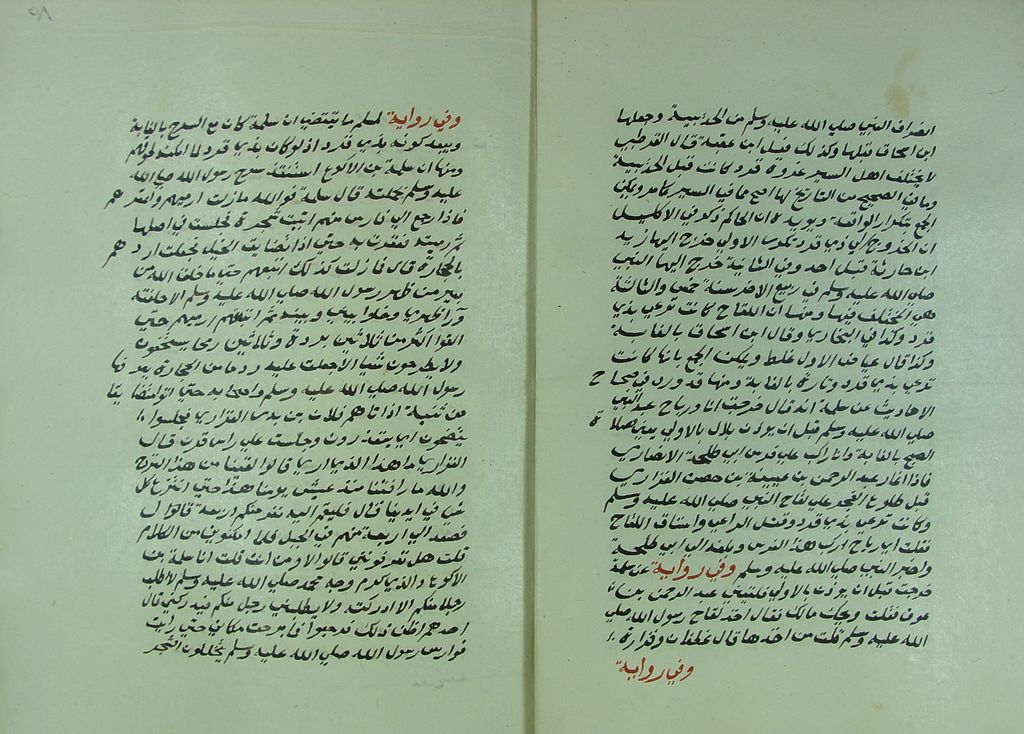 انصراف النبي صلي الله عليه وسلم من الحديبية وجعلها
ابن اسحاق قبلها وكذلك قبل ابن عقبة قال القرطبي
لا يختلف اهل السير ان غزوة قرد كانت قبل الحديبية
وما في الصحيح من التاريخ لها اصح مما في السير كما مر ويمكن
الجمع بتكرار الواقعة ويؤيده ان الحاكم ذكر في الاكليل
ان الخروج الي ذي قرد تكرر الاولي خرج اليها زيد
ابن حارثة قبل احد وفي الثانية خرج اليها النبي
صلي الله عليه وسلم في ربيع الاخر سنة خمس والثالثة
هي المختلف فيها ومنها ان اللقاح كانت ترعي بذي
قرد وكذا في البخاري وقال ابن اسحاق بالغابة
وكذا قال عياض الاول غلط ويمكن الجمع بانها كانت
ترعي بذي قرد وتارة بالغابة ومنها قد ورد في صحاح
الاحاديث عن سلمة انه قال خرجت انا ورباح عبد النبي
صلي الله عليه وسلم قبل ان يوذن بلال بالاولي يعني صلاة
الصبح بالغابة وانا راكب علي فرس ابي طلحة الانصاري
فاذا اغار عبد الرحمن بن عيينة بن حصن الفزاري
قبل طلوع الفجر علي لقاح النبي صلي الله عليه وسلم
وكانت ترعي بذي قرد وقتل الراعي واستاق اللقاح
فقلت اي رباح اركب هذا الفرس وبلغه الي ابي طلحة
واخبر النبي صلي الله عليه وسلم وفي رواية عن سلمة
خرجت قبل ان يوذن بالاولي فلقيني عبد الرحمن بن
عوف فقلت ويحك مالك فقال اخذ لقاح رسول الله صلي
الله عليه وسلم قلت من اخذها قال غطفان وفزارة
وفي رواية
وفي رواية لمسلم ما يقتضي ان سلمة كان مع السرح بالغابة
ويبعد كونه بذي قرد اذ لو كان بذي قرد لما امكنه
ومنها ان سلمة بن الاكوع استنقذ سرح رسول الله صلي الله
عليه وسلم بجملته قال سلمة فوالله مازلت ارميهم واعقرهم
فاذا رجع الي فارس منهم اتيت شجرة فجلست في اصلها
ثم رميته فعقرت به حتي اذا تضايق الجبل فجعلت اردهم
بالحجارة قال فما زلت كذلك اتبعهم حتي ما خلق الله من
بعير من ظهر رسول الله صلي الله عليه وسلم الا خلفته
وراء ظهري وخلوا بيني وبينه ثم اتبعتهم ارميهم حتي
القوا اكثر من ثلاثين بردة وثلاثين رمحا يستخفون
ولا يطرحون شيا الا جعلت عليه ردما من الحجارة يعرفها
رسول الله صلي الله عليه وسلم واصحابه حتي اتوا متضايقا
من ثنية اذا اتاهم فلان بن بدر الفزاري فجلسوا
يتضحون اي يتغذون وجلست علي راس قرن قال
الفزاري ما هذا الذي اري قالوا لقينا من هذا البرح
والله ما فارقنا منذ غبش يومنا هذا حتي انتزع كل
شي في ايدينا قال فليقم اليه نفر منكم اربعة قال
فصعد الي اربعة منهم في الجبل فلما امكنوني من الكلام
قلت هل تعرفونني قالوا لا ومن انت قلت انا سلمة بن
الاكوع والذي كرم وجه محمد صلي الله عليه وسلم لا اطلب
رجلا منكم الا ادركته ولا يطلبني رجل منكم فيدركني قال
احدهم اظن ذلك فرجعوا فما برحت مكاني حتي رايت
فوارس رسول الله صلي الله عليه وسلم يتخللون الشجر